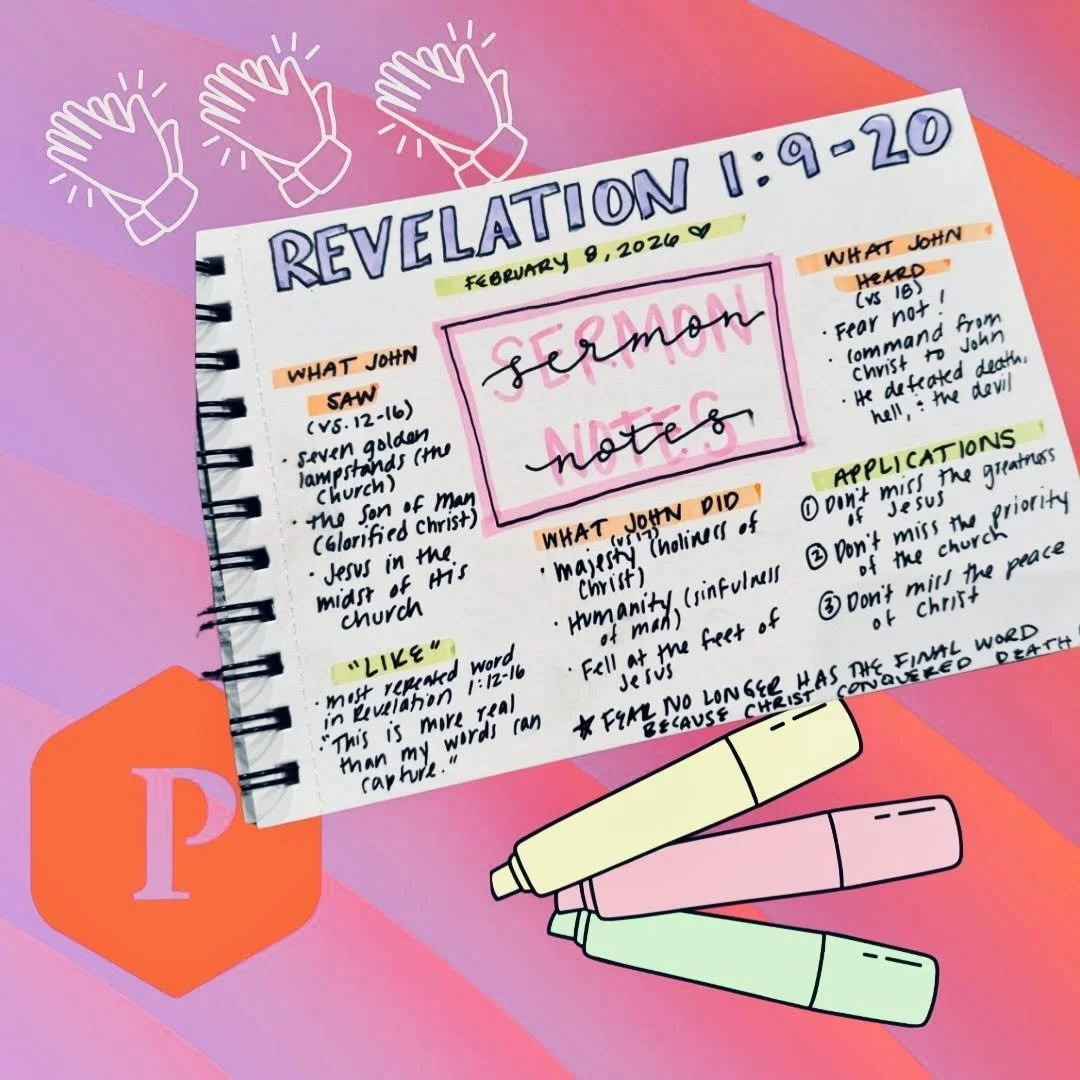 REVELATION 1:9-20
FEBRUARY 8, 2026 ♡
SERMON
NOTES
sermon
notes
WHAT JOHN
SAW
(vs. 12-16)
· seven golden
lampstands (the
church)
· the son of Man
(Glorified Christ)
· Jesus in the
midst of His
church
"LIKE"
· most repeated word
in Revelation 1:12-16
· "This is more real
than my words can
capture."
WHAT JOHN DID
(vs 17)
· majesty (holiness of
Christ)
· Humanity (sinfulness
of man)
· Fell at the feet of
Jesus
WHAT JOHN
HEARD
(vs 18)
· Fear not!
· command from
Christ to John
· He defeated death,
hell, & the devil
APPLICATIONS
① Don't miss the greatness
of Jesus
② Don't miss the priority
of the church
③ Don't miss the peace
of Christ
* FEAR NO LONGER HAS THE FINAL WORD
BECAUSE CHRIST CONQUERED DEATH!
P